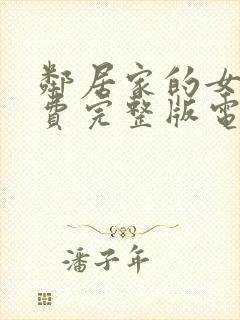 鄰居家的女
費完整版電
潘子年